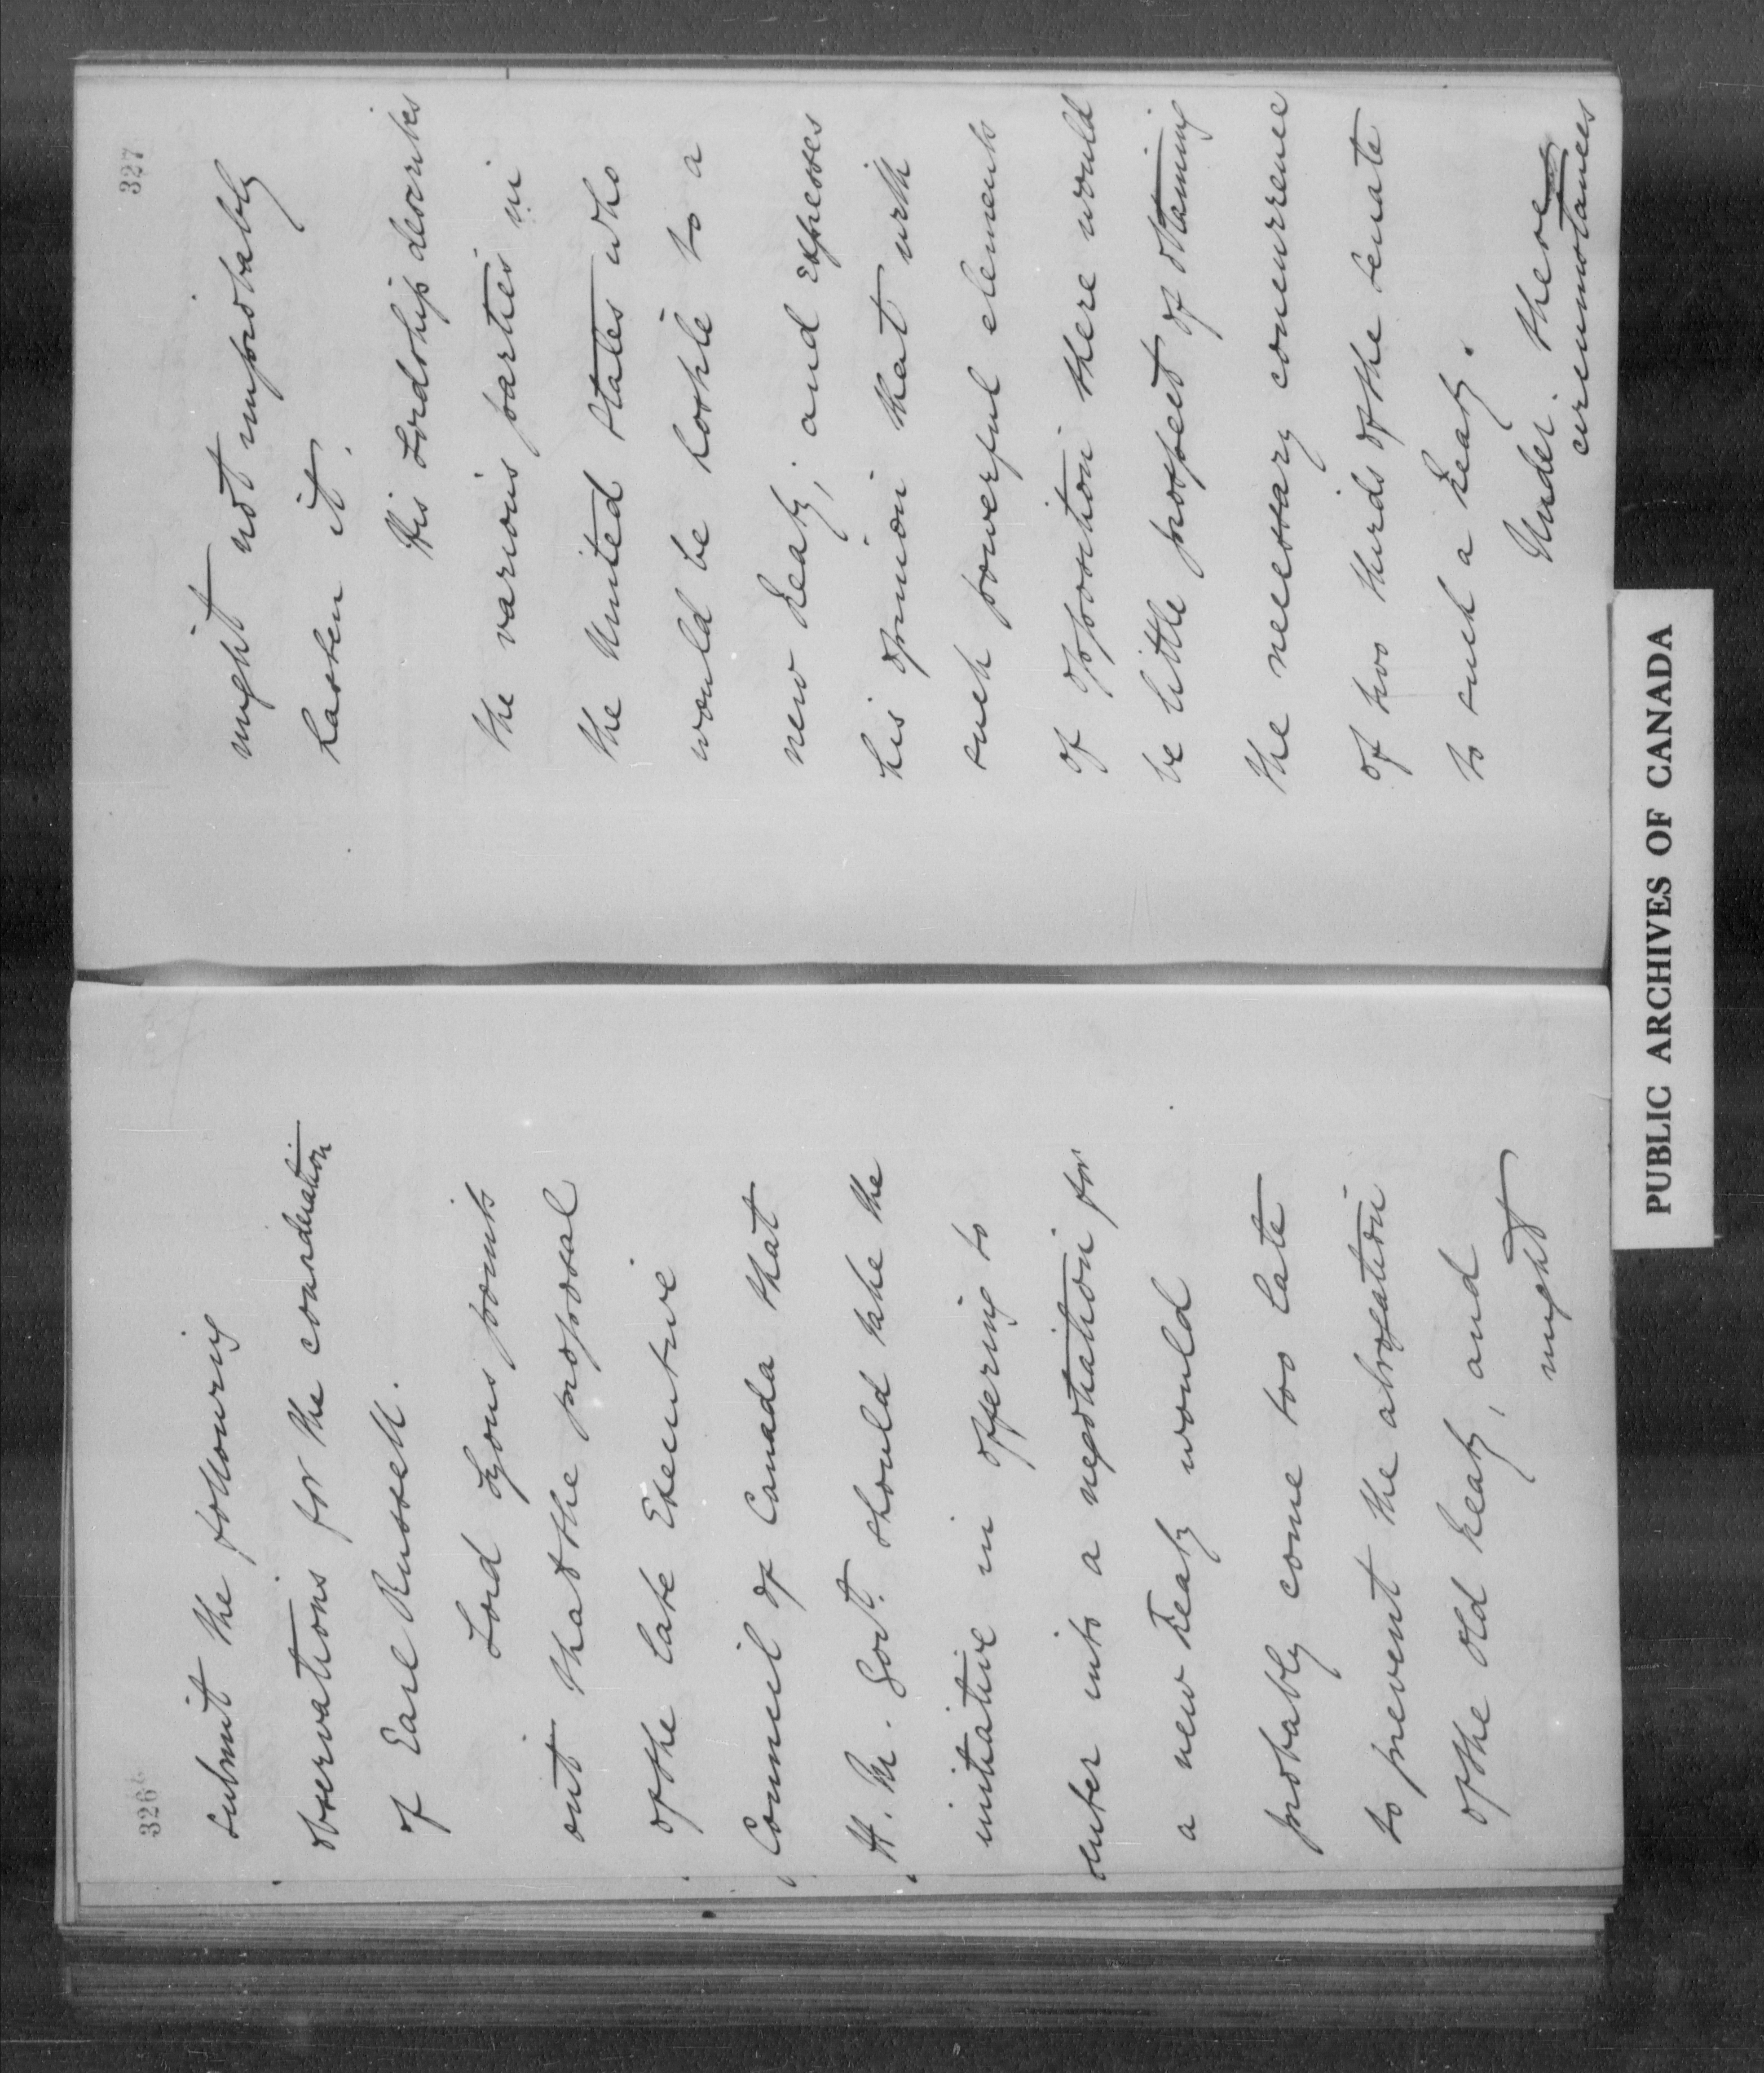 326
submit the following
observations for the consideration
of Earl Russell.
Lord Lyons points
out that the proposal
of the late Executive
Council of Canada that
H. M. Govt. should take the
initiative in offering to
enter into a negotiation for
a new treaty would
probably come too late
to prevent the abrogation
of the old treaty, and
might
327
might not improbably
hasten it.
His Lordship describes
the various parties in
the United States who
would be hostile to a
new treaty, and expresses
his opinion that with
such powerful elements
of opposition there would
be little prospect of obtaining
the necessary concurrence
of two thirds of the Senate
to such a treaty.
Under these
circumstances
PUBLIC ARCHIVES OF CANADA